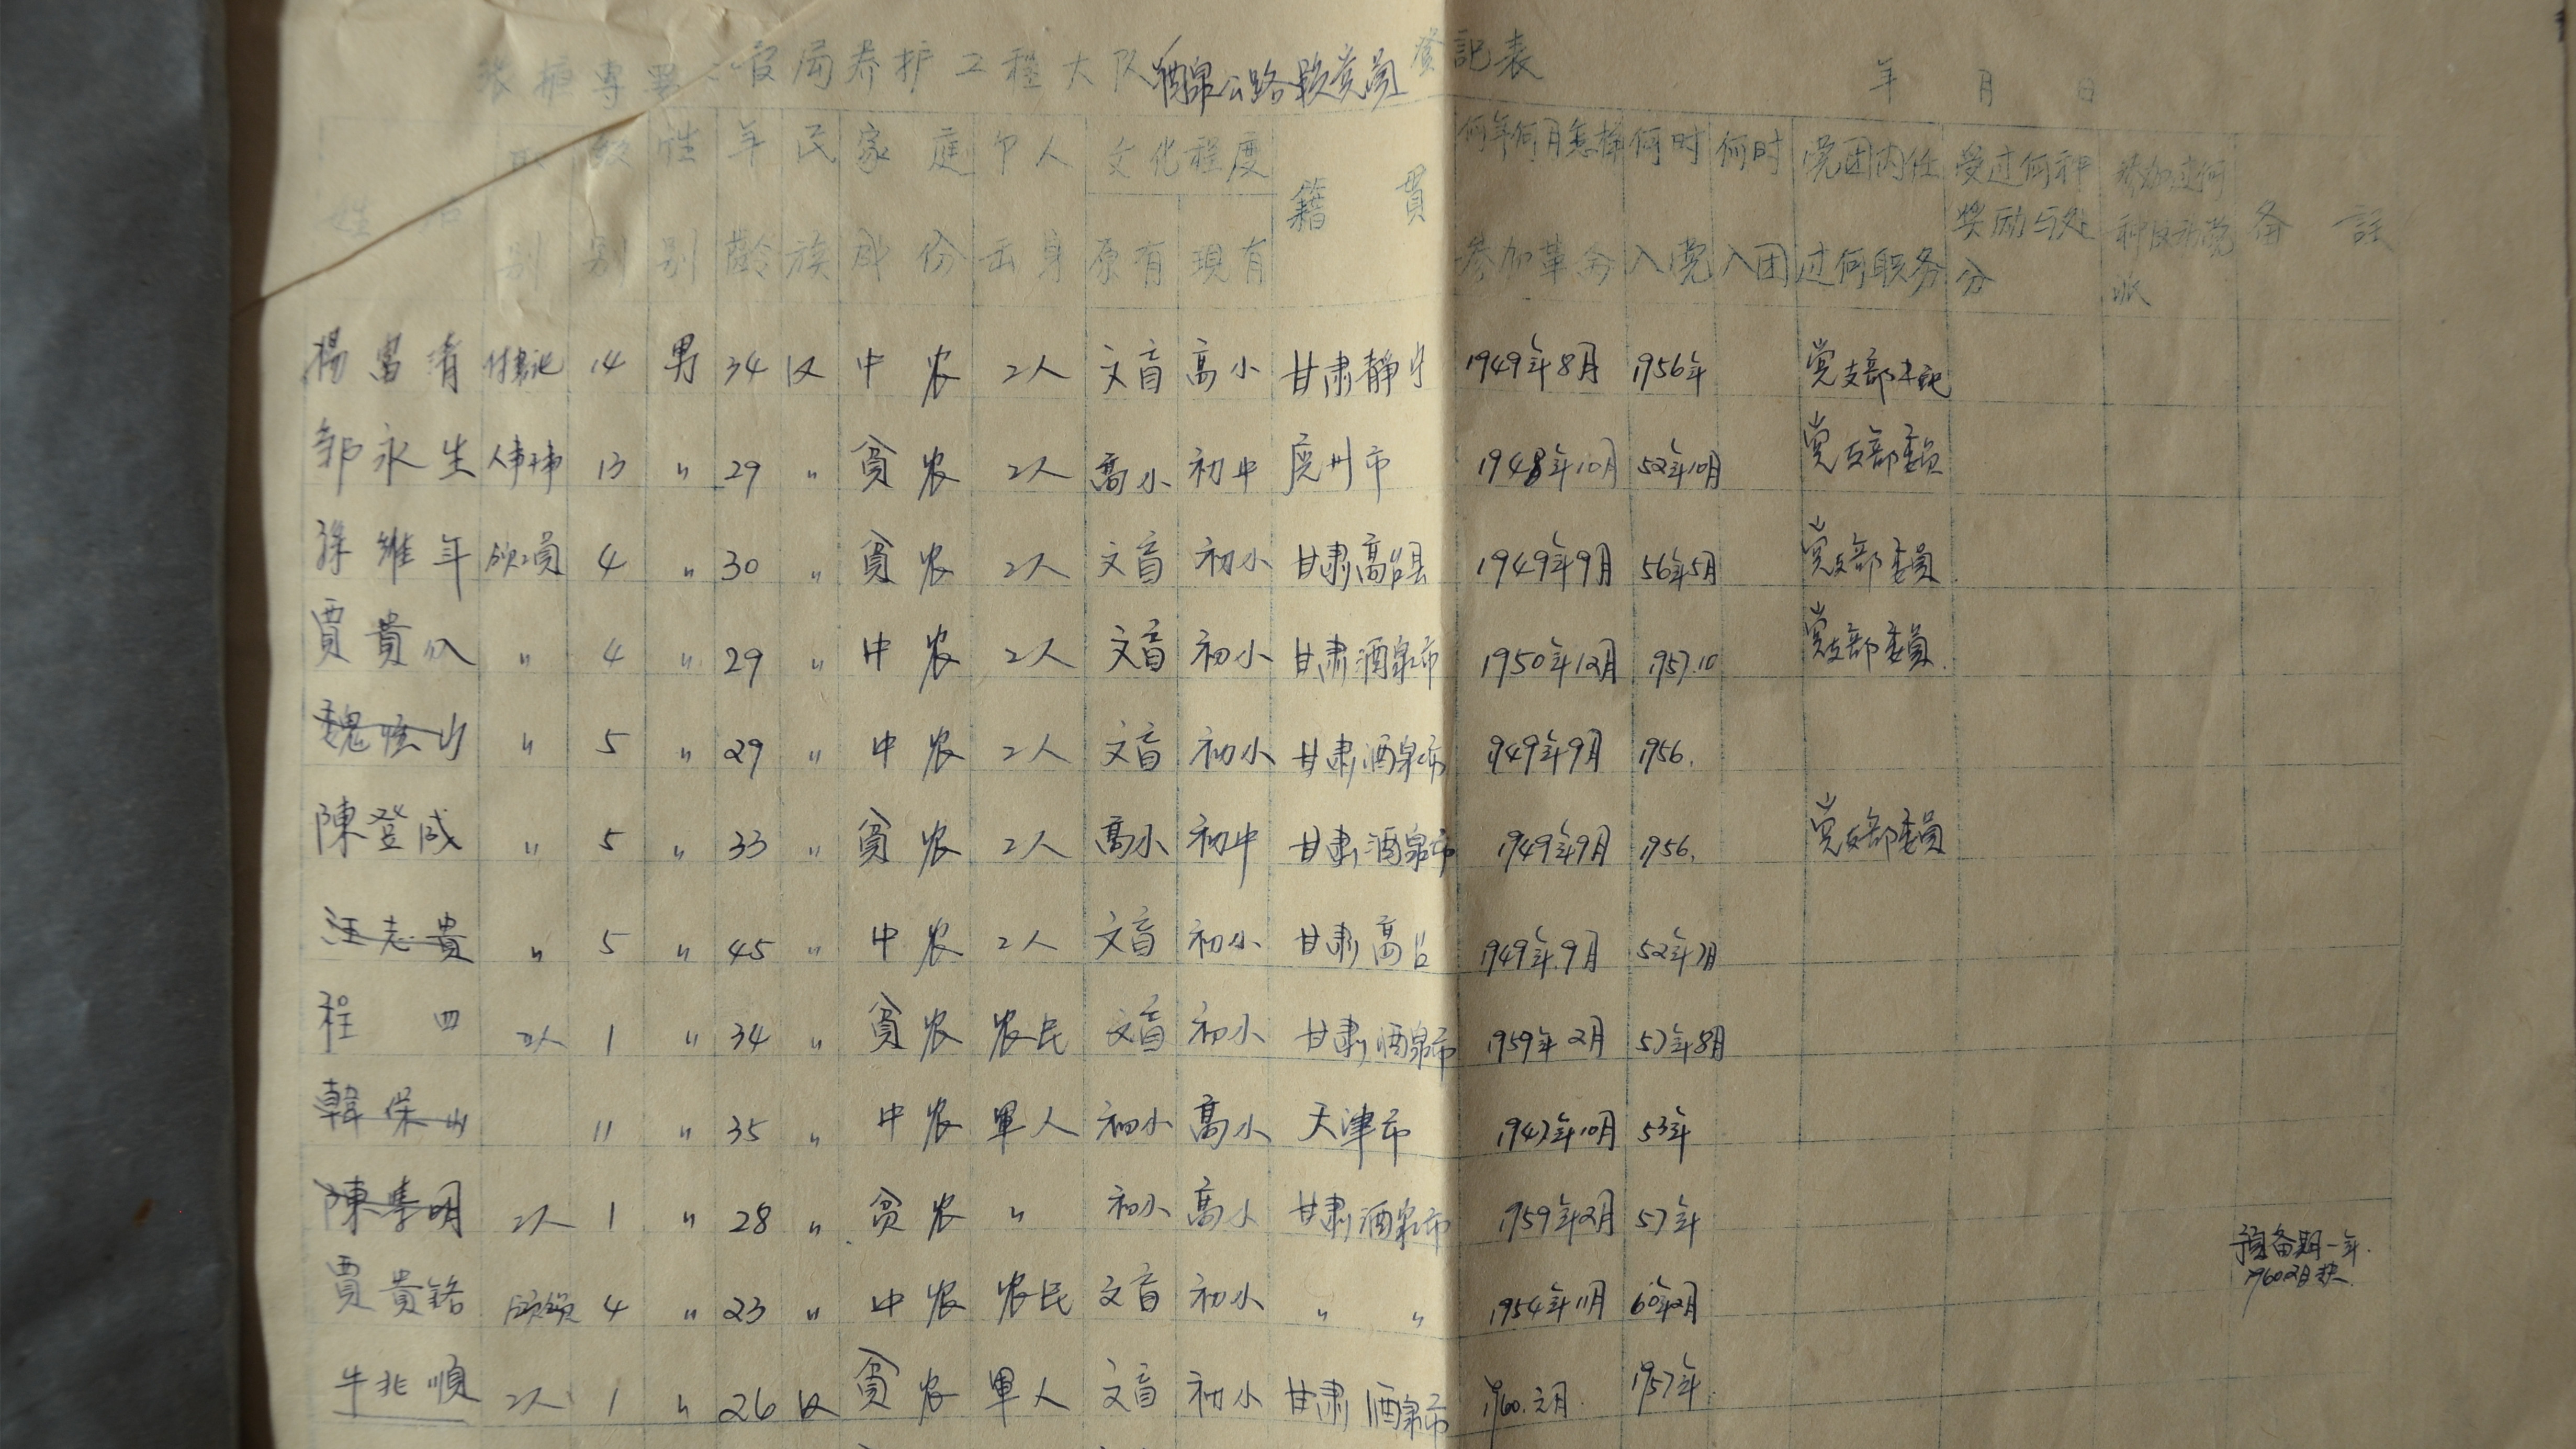 张掖専署 局养护工程大队酒泉公路段党员登記表
年 月 日
姓 名 职别 级别 性别 年齡 民族 家庭成份 个人出身 文化程度 原有 現有 籍貫 何年何月怎样参加革命 何时入党 何时入团 党团内任过何职务 受过何种奖励与处分 参加过何种 党派 备註
楊富清 14 男 34 汉 中农 工人 文盲 高小 甘肃静宁 1949年8月 1956年 党支部书記
邹永生 人事干事 13 〃 29 〃 貧农 工人 高小 初中 广州市 1948年10月 52年10月 党支部委员
維年 4 〃 30 〃 貧农 工人 文盲 初小 甘肃高台县 1949年9月 56年5月 党支部委員
賈貴 〃 4 〃 29 〃 中农 工人 文盲 初小 甘肃酒泉市 1950年12月 1957.10 党支部委員.
魏 山 〃 5 〃 29 〃 中农 工人 文盲 初小 甘肃酒泉市 1949年9月 1956.
陳登成 〃 5 〃 33 〃 貧农 工人 高小 初中 甘肃酒泉市 1949年9月 1956. 党支部委員
汪志貴 〃 5 〃 45 〃 中农 工人 文盲 初小 甘肃高台 1949年9月 52年7月
程四 工人 1 〃 34 〃 貧农 农民 文盲 初小 甘肃酒泉市 1959年2月 57年8月
韓保山 11 〃 35 〃 中农 軍人 初小 高小 天津市 1947年10月 53年
陳 明 工人 1 〃 28 〃 貧农 〃 初小 高小 甘肃酒泉市 1959年2月 57年
賈貴銘 4 〃 23 〃 中农 农民 文盲 初小 〃 〃 1954年11月 60年2月 預备期一年.
牛兆順 工人 1 〃 26 汉 貧农 軍人 文盲 初小 甘肃酒泉市 1960.元月. 1957年.